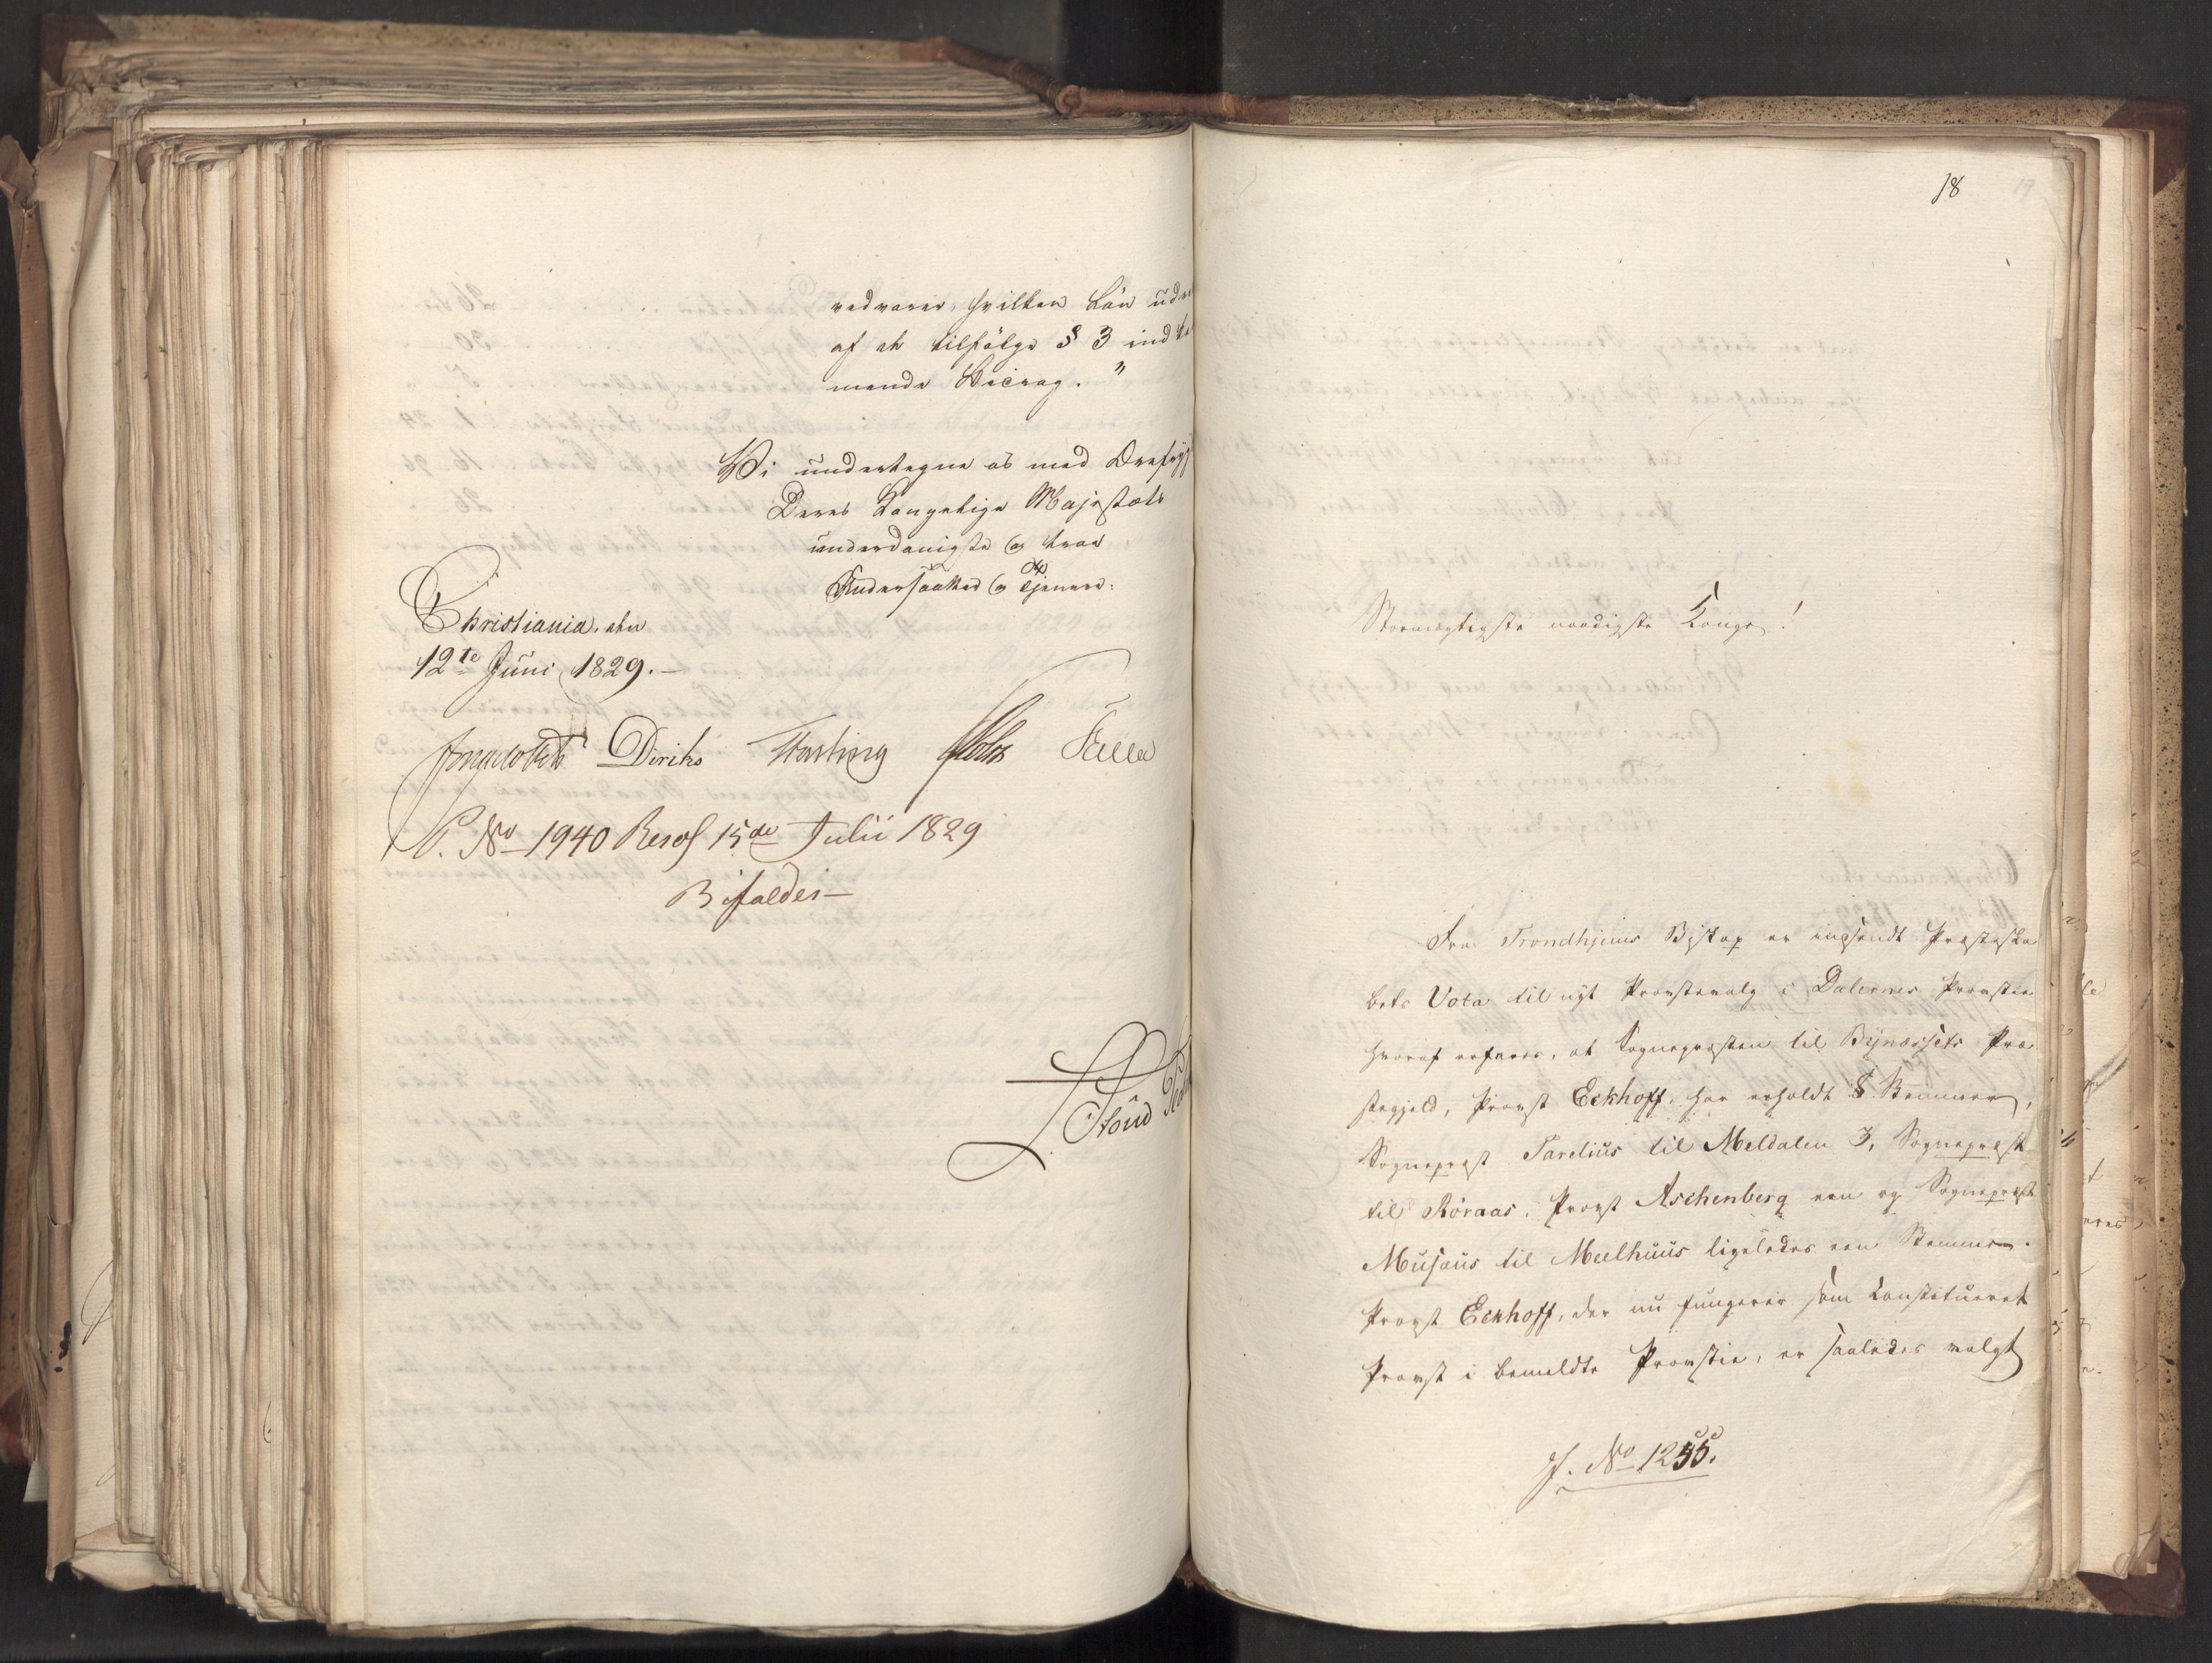 vedvarer, hvilken Lön ud
af de tilfølge § 3 ind
mende Bidrag."
Vi undertegne os med Ærefryg
Deres Kongelige Majestæts
underdanigste og troe
Undersaatter og Tjenere:
Christiania, den
12te Juni 1829.-
Diriks Fasting Holst
P. No 1940 Resol 15de Julii 1829
Bifaldes-
18
Stormægtigste naadigste Konge!
Fra Trondhjems Biskop er indsendt Præsteska
bets Vota til nyt Provstevalg i Dalernes Provstie
hvoraf erfares, at Sognepræsten til Bynæssets Præ
stegjeld, Provst Eckhoff, har erholdt 8 Stemmer,
Sognepræst Parelius til Meldalen 3, Sognepræst
til Röraas, Provst Aschenberg een og Sognepræst
Musæus til Meelhuus ligeledes een Stemme.
Provst Eckhoff, der nu fungerer som Constitueret
Provst i bemeldte Provstie, er saaledes valgt
J. No 1255.